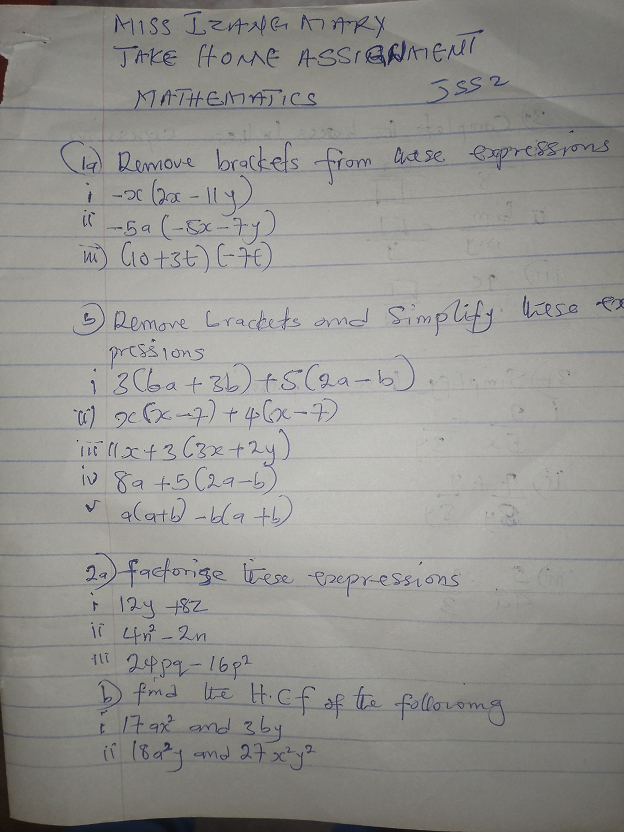 MISS IZANG MARY
TAKE HOME ASSIGNMENT
MATHEMATICS JSS2
1a) Remove brackets from these expressions
i -x(2x - 11y)
ii -5a(-5x - 7y)
iii) (10 + 3t)(-7t)
b) Remove brackets and Simplify these ex
pressions
i 3(6a + 3b) + 5(2a - b)
ii) x(x - 7) + 4(x - 7)
iii 11x + 3(3x + 2y)
iv 8a + 5(2a - b)
v a(a+b) - b(a + b)
2a) factorise these expressions
i 12y + 8z
ii 4n² - 2n
iii 24pq - 16p²
b) find the H.C.f of the following
i 17ax² and 3by
ii 18a²y and 27x²y²